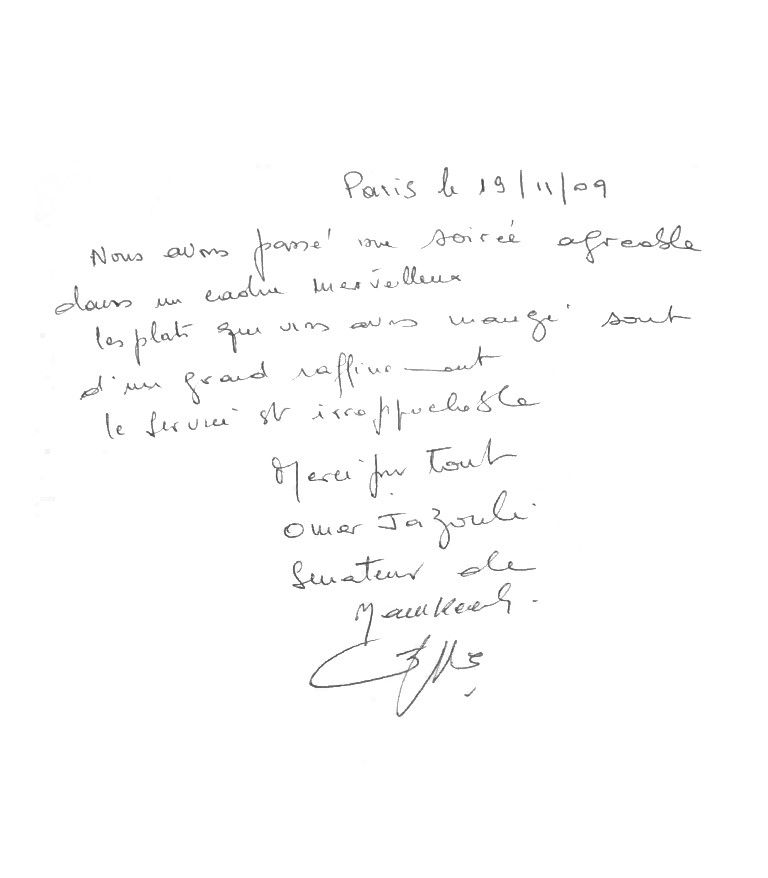 Paris le 19/11/09
Nous avons passé une soireé agreable
dans un cadre merveilleux
les plats que nous avons mangé sont
d'un grand raffinement
le service est irreprochable
Merci pour Tout
Omar Jazouli
Senateur de
Marrakech.